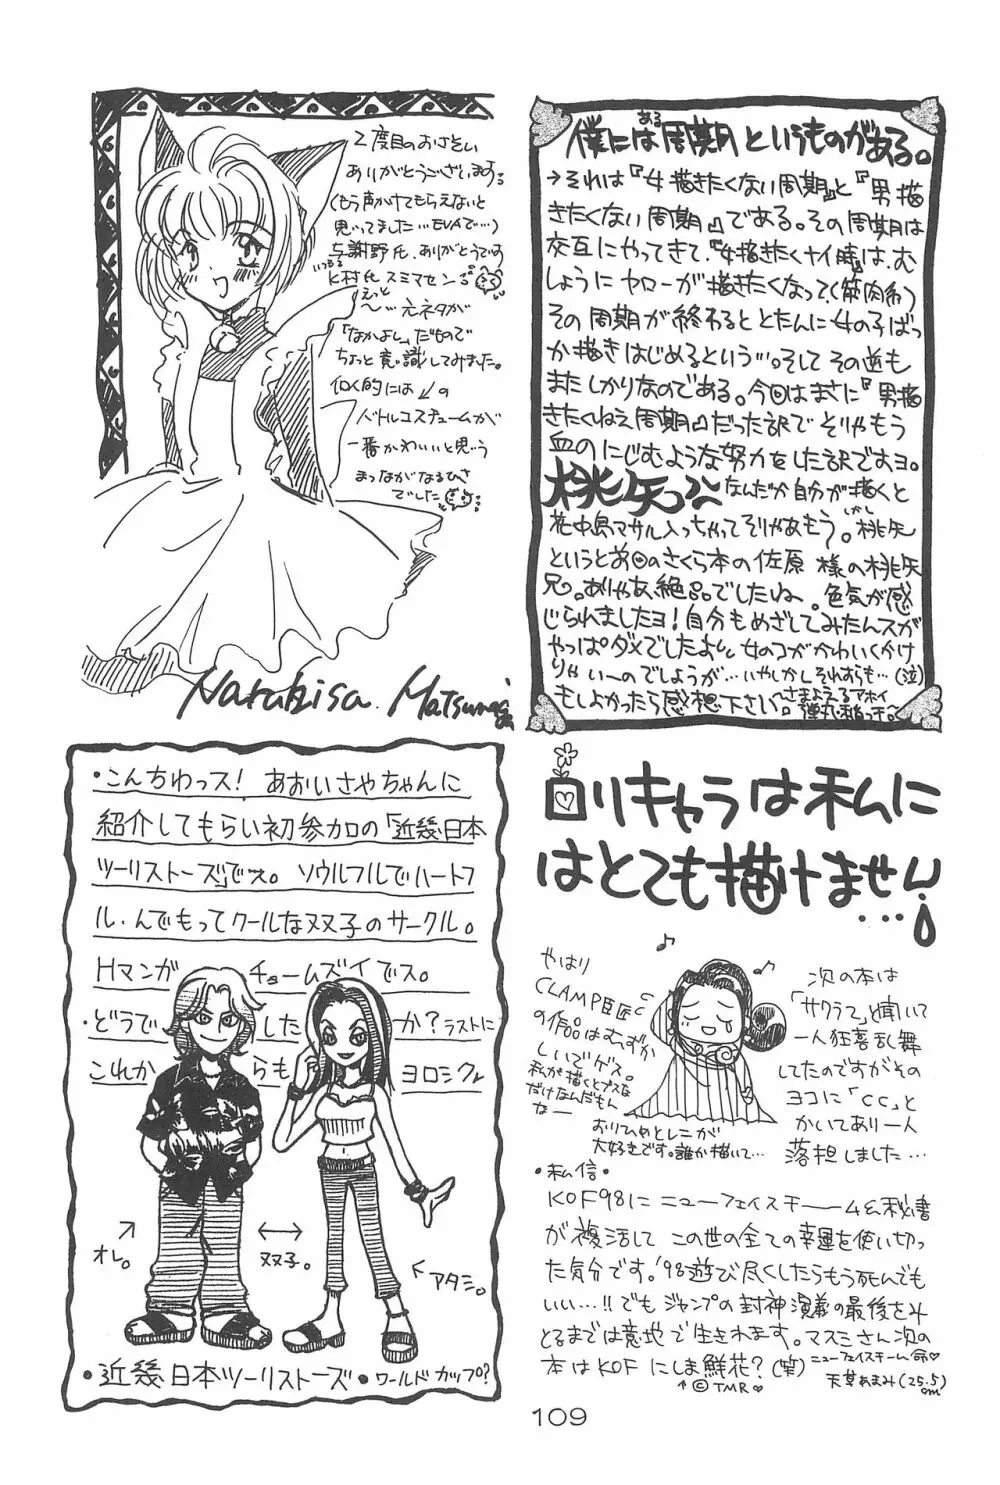 2度目のおさそい
ありがとうございます
(もう声かけてもらえないと
思ってました…EVAで…)
与謝野氏、ありがとうです
いつも
K村氏スミマセンる
えっと
〜…元ネタが
「なかよし」だもので
ちょっと意識してみました。
個的には↙の
バトルコスチュームが
一番かわいいと思う
まつながなるひさ
でした
Naruhisa. Matsunaga
僕にはある周期というものがある。
→それは『女描きたくない周期』と『男描
きたくない周期』である。その周期は
交互にやってきて、『女描きたくナイ時』は、む
しょうにヤローが描きたくなって(筋肉希)
その周期が終わるととたんに女の子ばっ
か描きはじめるという…。そしてその逆も
またしかりなのである。今回はまさに『男描
きたくねえ周期』だった訳でそりゃもう
血のにじむような努力をした訳ですヨ。
桃矢っ なんだか自分が描くと
花中島マサル入っちゃってそりゃあもう。しかし桃矢
というと前回のさくら本の佐原 様の桃矢
兄。ありゃあ、絶品でしたね。色気が感
じられましたヨ!自分もめざしてみたんスが
やっぱダメでしたよ。女のコがかわいくかけ
りゃいーのでしょうが…いやしかしそれすらも…(泣)
もしよかったら感想下さい。さまよえるアホイ
弾丸稲っ子。
・こんちわっス! あおいさやちゃんに
紹介してもらい初参加の「近畿日本
ツーリストーズ」でス。ソウルフルでハートフ
ル.んでもってクールな双子のサークル。
Hマンガ チョームズイでス。
・どうでした か?ラストに
これからも ヨロシク
オレ。
双子。
アタシ。
・近畿日本ツーリストーズ・ワールドカップ?
ロリキャラは私に
はとても描けません!…
やはり
CLAMP巨匠
の作品はむずか
しいでゲス。
私が描くとブスな
だけなんだもん
なー
おりひめとレニが
大好きです。誰か描いて…
次の本は
「サクラ2」と聞いて
一人狂喜乱舞
したのですがその
ヨコに「CC」と
かいてあり一人
落担しました…
・私信・
KOF98にニューフェイスチームと秘書
が復活してこの世の全ての幸運を使い切っ
た気分です。'98遊び尽くしたらもう死んでも
いい…!!でもジャンプの封神演義の最後を見
とるまでは意地で生きれます。マスミさん次の
本はKOFにしま鮮花?(笑)ニューフェイスチーム命♡
↑©TMR♡ 天草あまみ(25.5)cm
109